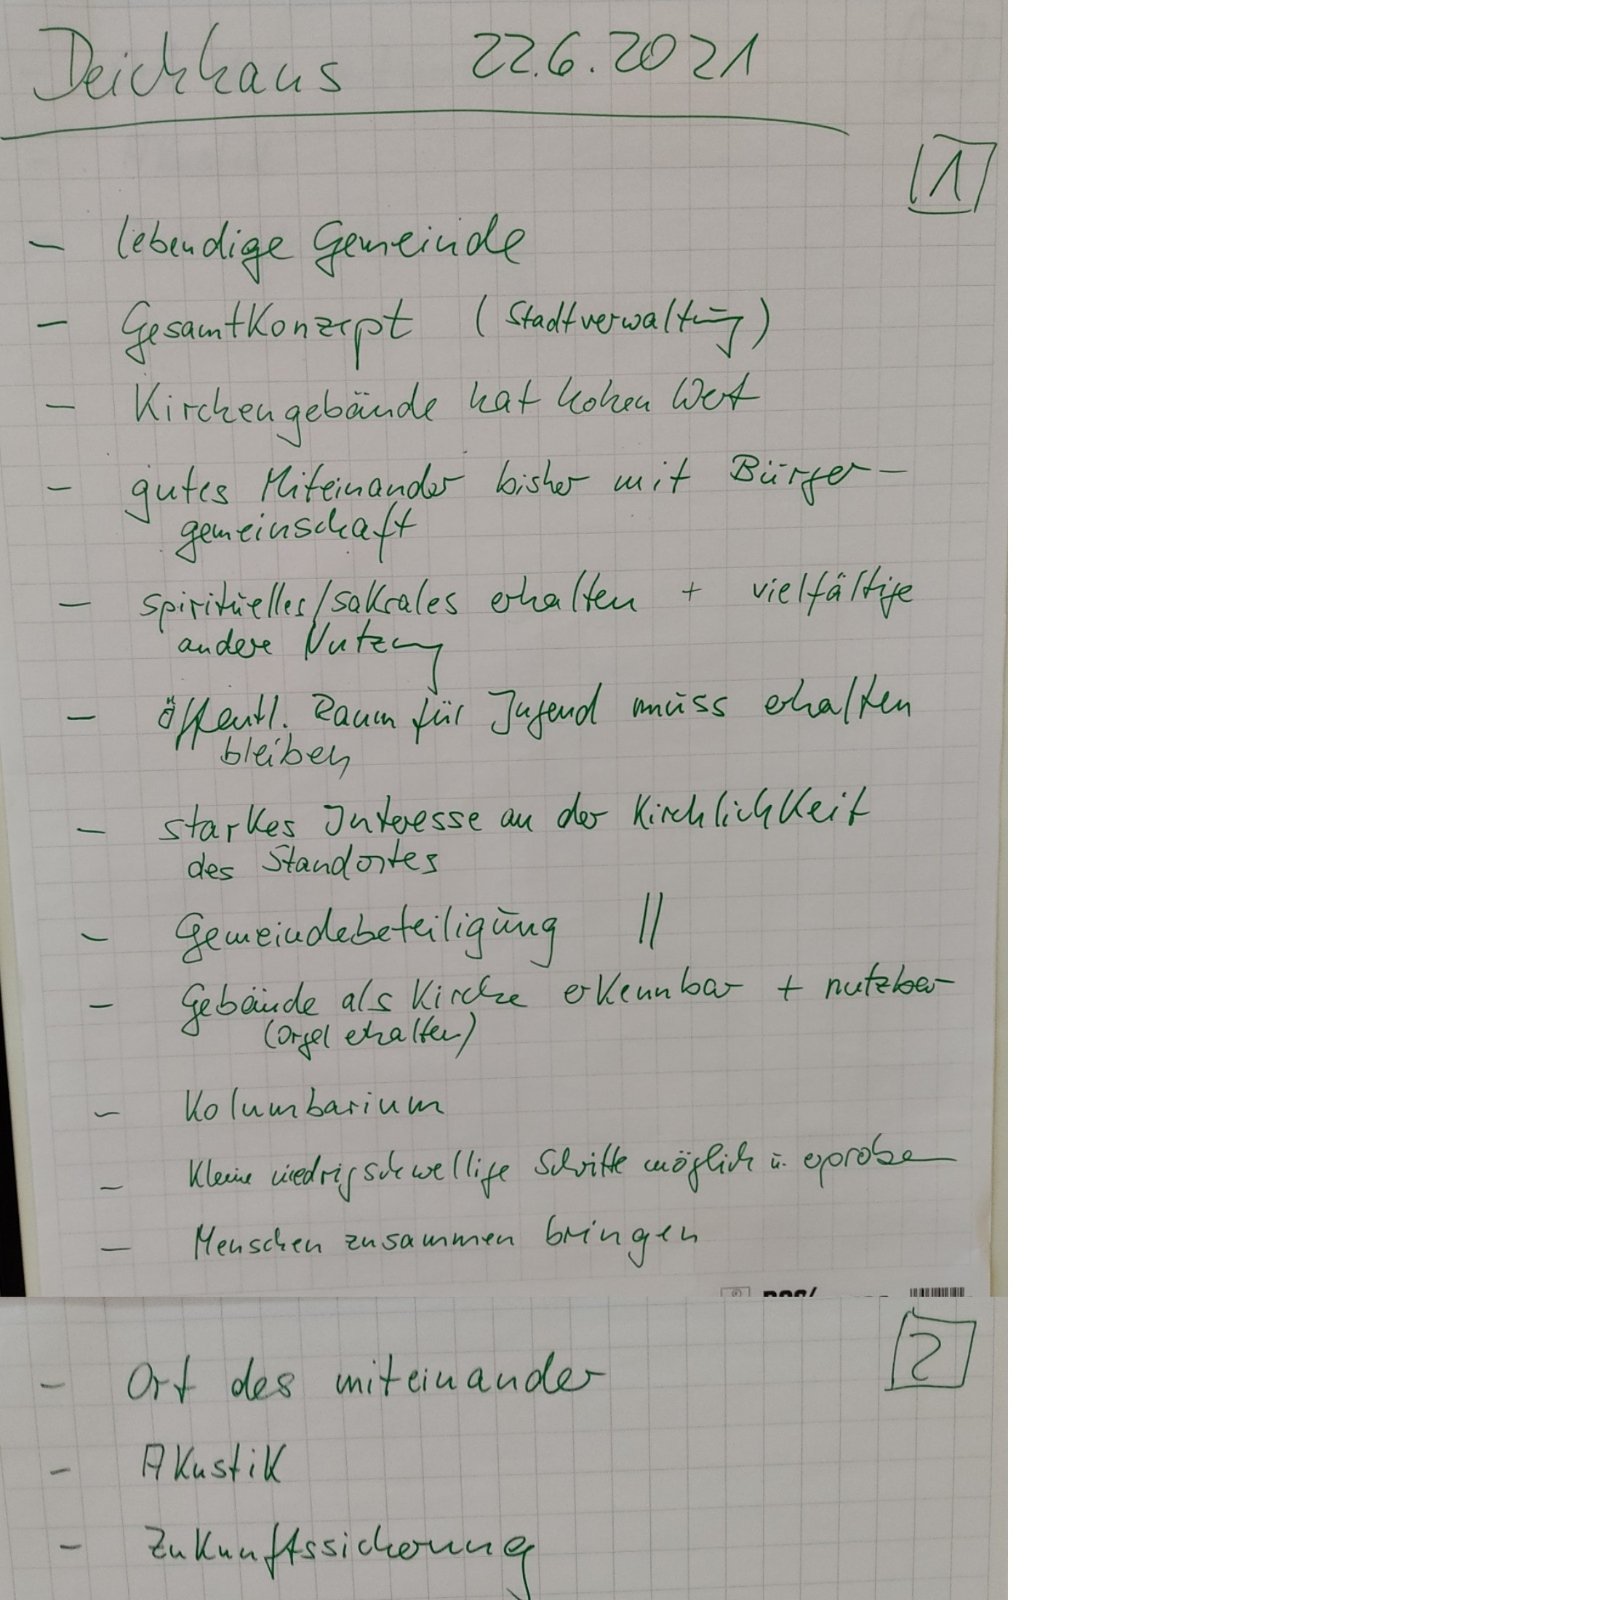 Deichhaus 22.6.2021
1
- lebendige Gemeinde
- Gesamtkonzept (Stadtverwaltung)
- Kirchengebäude hat hohen Wert
- gutes Miteinander bisher mit Bürger-
gemeinschaft
- spirituelles/sakrales erhalten + vielfältige
andere Nutzung
- öffentl. Raum für Jugend muss erhalten
bleiben
- starkes Interesse an der Kirchlichkeit
des Standortes
- Gemeindebeteiligung ||
- Gebäude als Kirche erkennbar + nutzbar
(Orgel erhalten)
- Kolumbarium
- Kleine niedrigschwellige Schritte möglich u. erproben
- Menschen zusammen bringen
2
- Ort des miteinander
- Akustik
- Zukunftssicherung